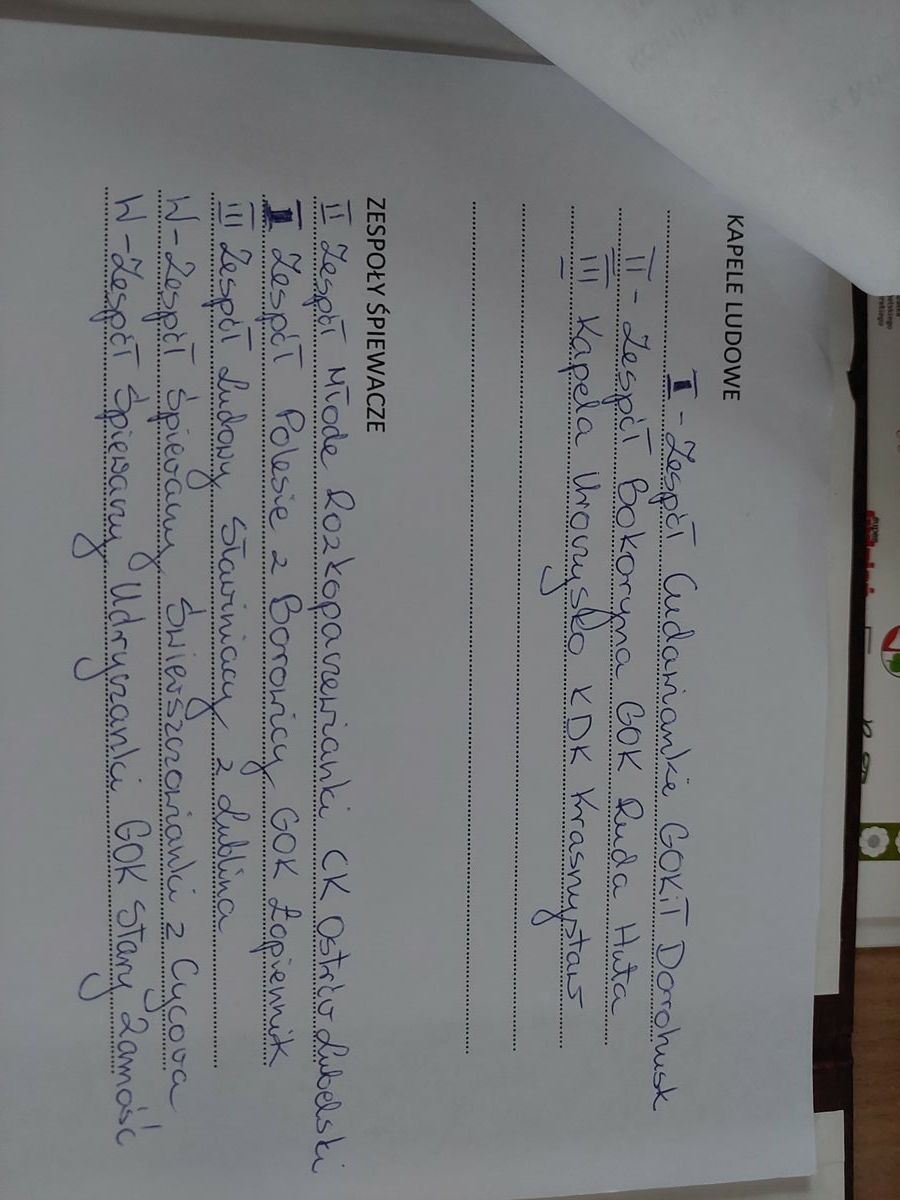 KAPELE LUDOWE
I - Zespół Cudawianki GOKiT Dorohusk
II - Zespół Bokoryna GOK Ruda Huta
III Kapela Uroczysko KDK Krasnystaw
ZESPOŁY ŚPIEWACZE
II Zespół Młode Rozkopaczewianki CK Ostrów Lubelski
I Zespół Polesie z Borowicy GOK Łopiennik
III Zespół Ludowy Sławiniacy z Lublina
W - Zespół Śpiewaczy Świerszczowianki z Cycowa
W - Zespół Śpiewaczy Udryczanki GOK Stary Zamość